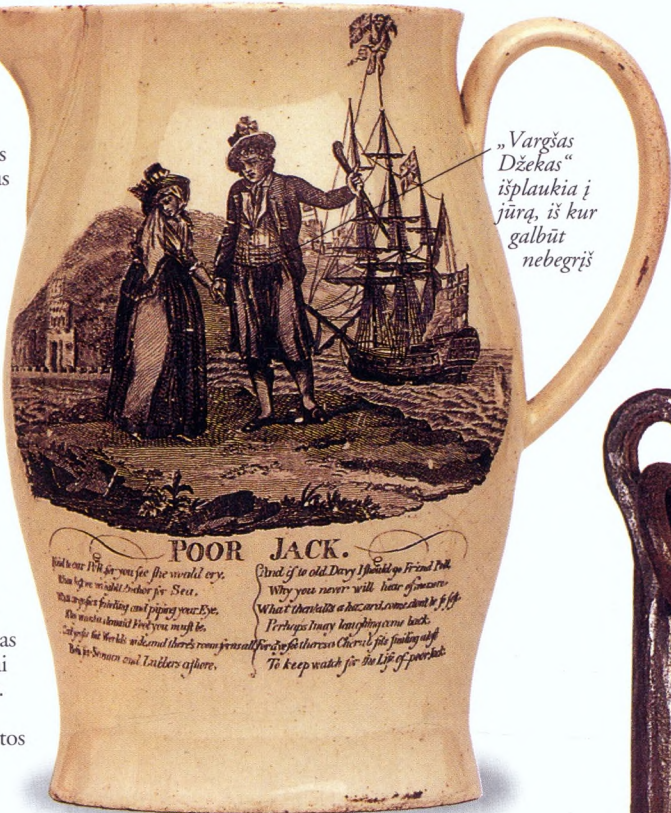 „Vargšas
Džekas“
išplaukia į
jūrą, iš kur
galbūt
nebegrįš
POOR JACK.
to our Poll for you see she would cry,
When last we weigh'd Anchor for Sea,
What argufies sniv'ling and piping your Eye,
what a damn'd Fool you must be,
see the World's wide and there's room for us all
Both for Seamen and Lubbers ashore,
And if to old Davy I should go Friend Poll,
Why you never will hear of me more
What then all's a hazard come don't be so soft
Perhaps I may laughing come back
For d'ye see theres a Cherub sits smiling aloft
To keep watch for the Life of poor Jack
as
tos